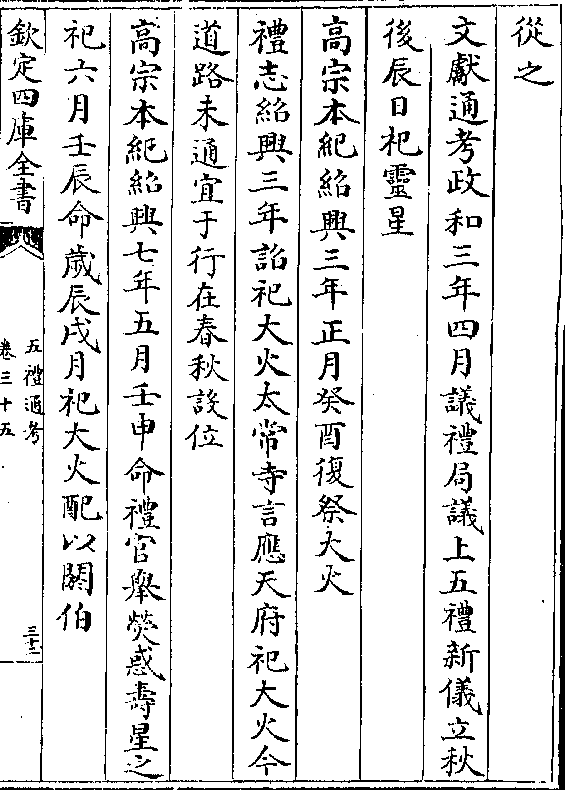 從之
文獻通考政和三年四月議禮局議上五禮新儀立秋
後辰日祀靈星
高宗本紀紹興三年正月癸酉復祭大火
禮志紹興三年詔祀大火太常寺言應天府祀大火今
道路未通宜于行在春秋設位
高宗本紀紹興七年五月壬申命禮官舉熒惑壽星之
祀六月壬辰命歲辰戌月祀大火配以閼伯
欽定四庫全書
五禮通考
卷三十五
三十二